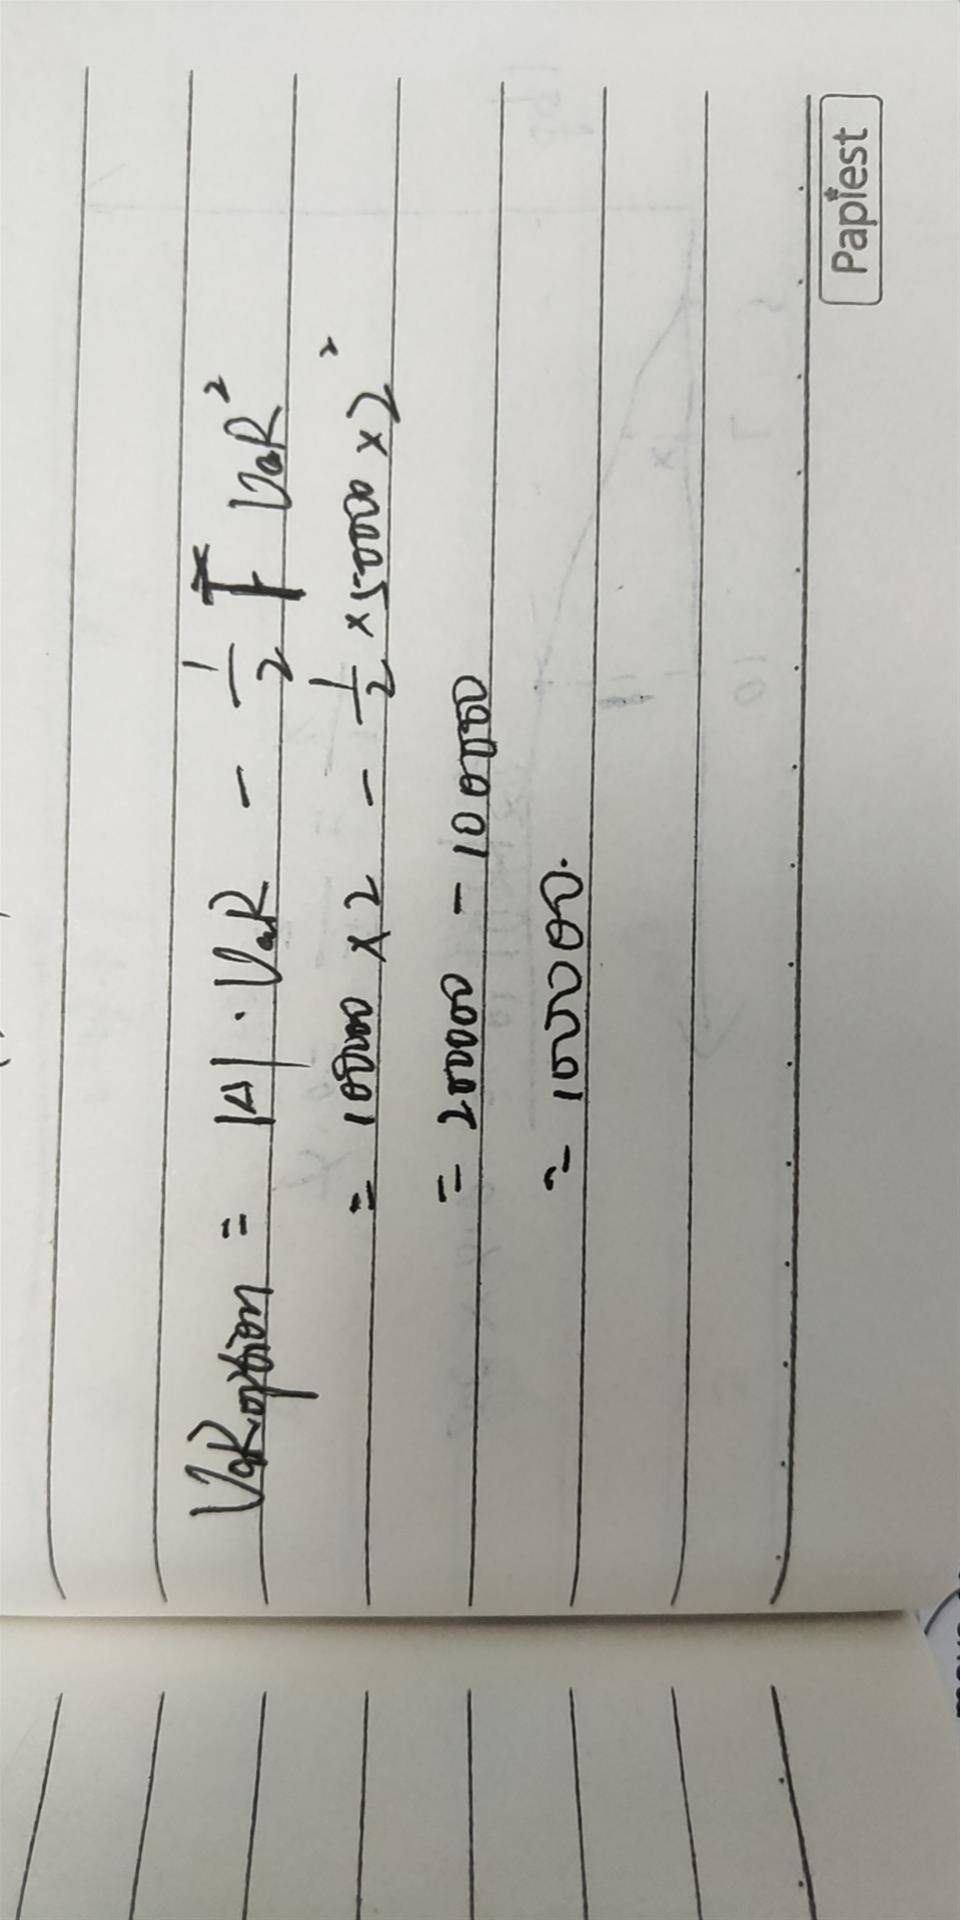 VaR option = |Δ| · VaR - 1/2 Γ VaR²
= 100000 × 2 - 1/2 × 50000 × 2²
= 200000 - 100000
= 100000.
Papiest